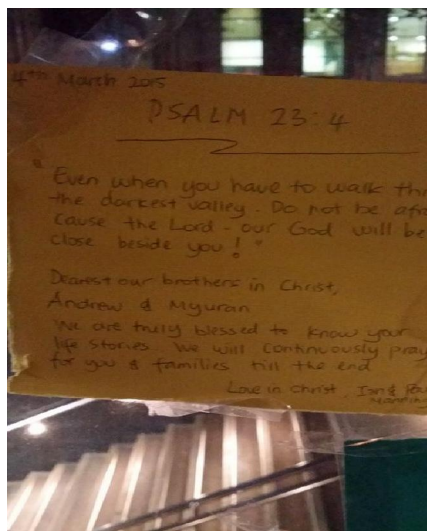 4th March 2015
PSALM 23:4
"Even when you have to walk
the darkest valley. Do not be
cause the Lord - our God will be
close beside you! "
Dearest our brothers in Christ,
Andrew & Myuran
We are truly blessed to know your
life stories. We will continuously pray
for you & families till the end
Love in Christ,